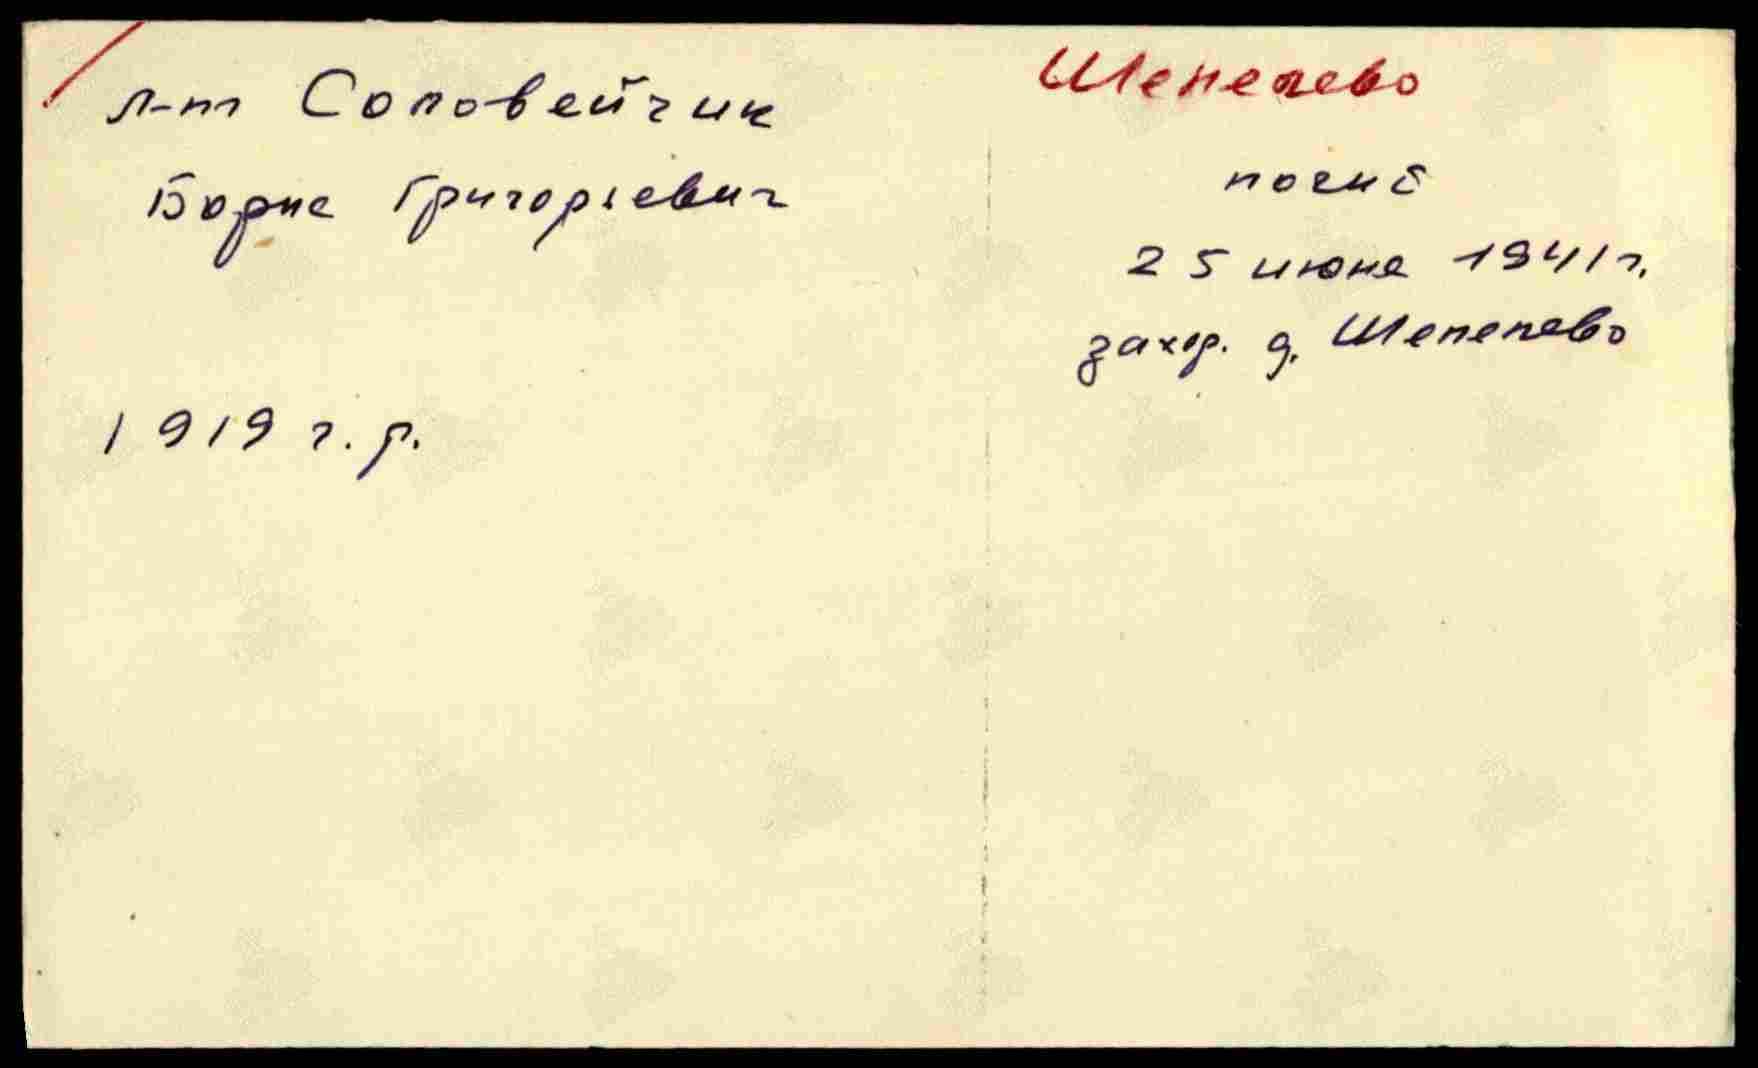 л-т Соловейчик
Борис Григорьевич
1919 г. р.
Шепелево
погиб
25 июня 1941 г.
захор. д. Шепелево